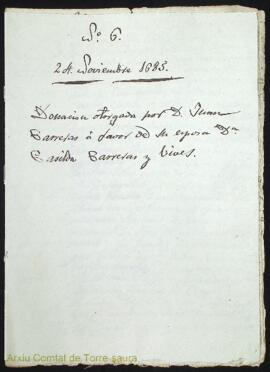 No. 6.
24. Noviembre 1685.
Donacion otorgada por D. Juan
Carreras á favor de su esposa Dª
Casilda Carreras y Vives.
Arxiu Comtal de Torre-saura